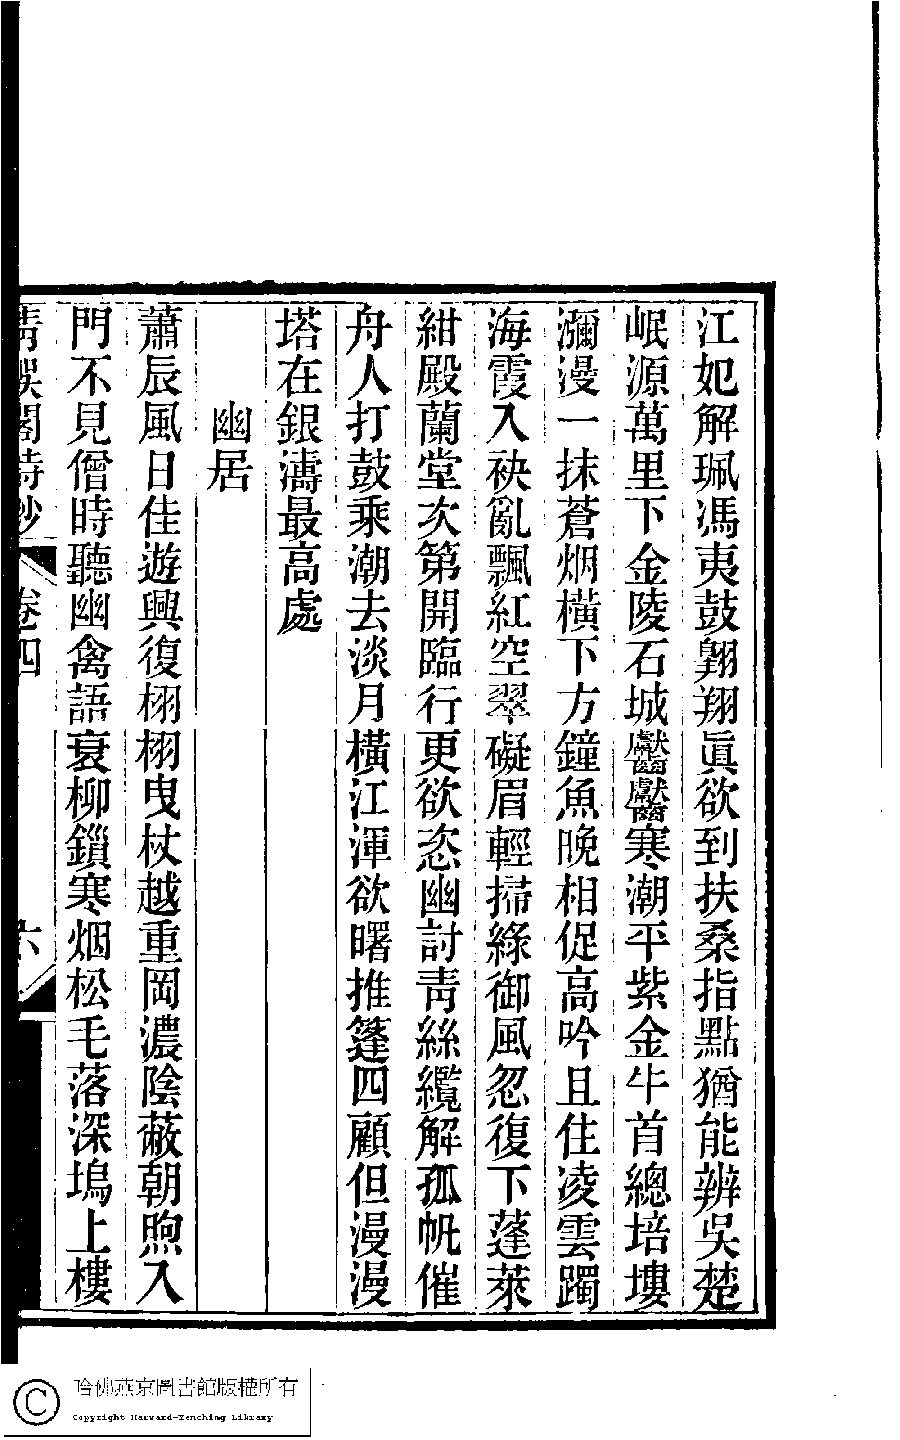 江妃解珮馮夷鼓翺翔眞欲到扶桑指點猶能辨吳楚
岷源萬里下金陵石城巘巘寒潮平紫金牛首總培塿
瀰漫一抹蒼烟橫下方鐘魚晚相促高吟且住凌雲躅
海霞入袂亂飄紅空翠礙眉輕掃綠御風忽復下蓬萊
紺殿蘭堂次第開臨行更欲恣幽討靑絲纜解孤帆催
舟人打鼓乘潮去淡月橫江渾欲曙推篷四顧但漫漫
塔在銀濤最高處
幽居
蕭辰風日佳遊興復栩栩曳杖越重岡濃陰蔽朝煦入
門不見僧時聽幽禽語衰柳鎖寒烟松毛落深塢上樓
卷四
六
哈佛燕京圖書館版權所有
Copyright Harvard-Yenching Library